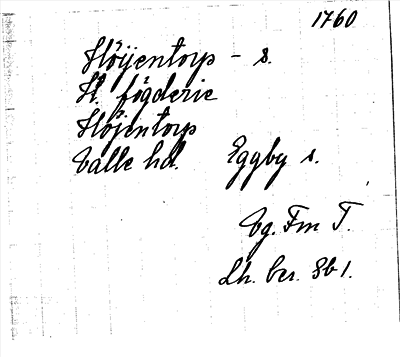 1760
Höijentorp - s.
H. fögderie
Höjentorp
Valle hd. Eggby s.
Vg. Fm T.
Lh. ber. 8b1.